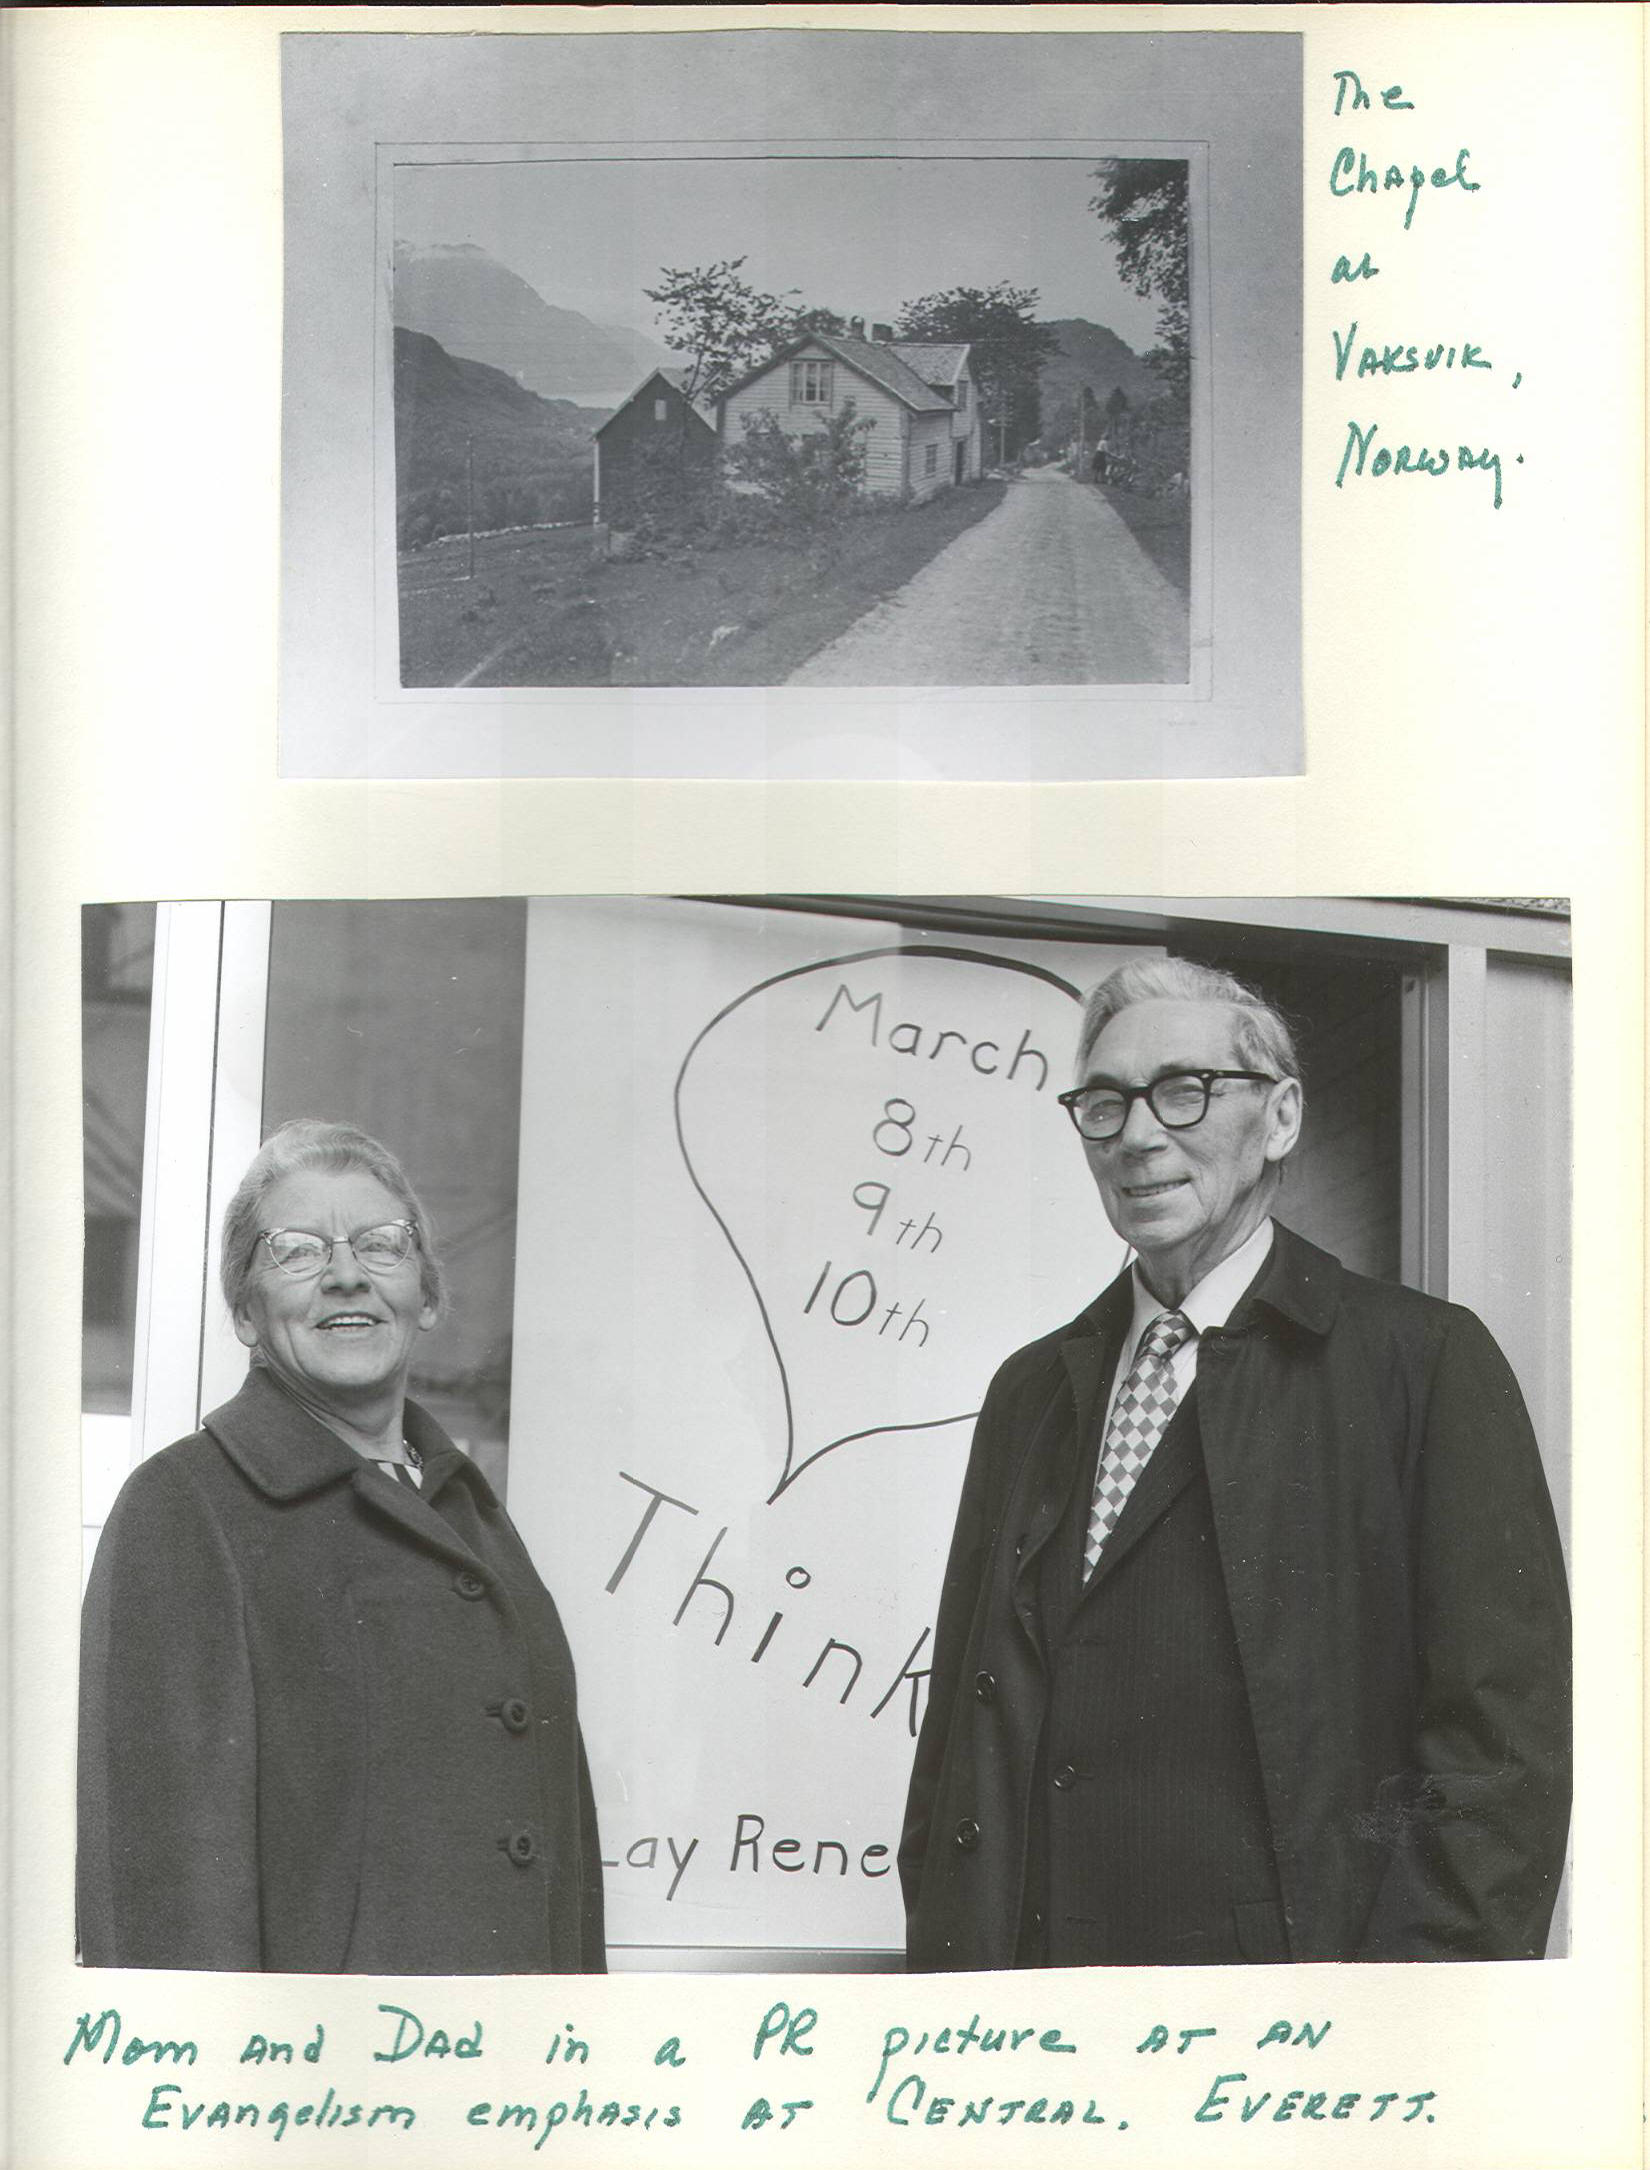 The
Chapel
at
Vaksvik,
Norway.
March
8th
9th
10th
Think
Lay Rene
Mom and Dad in a PR picture at an
Evangelism emphasis at Central, Everett.